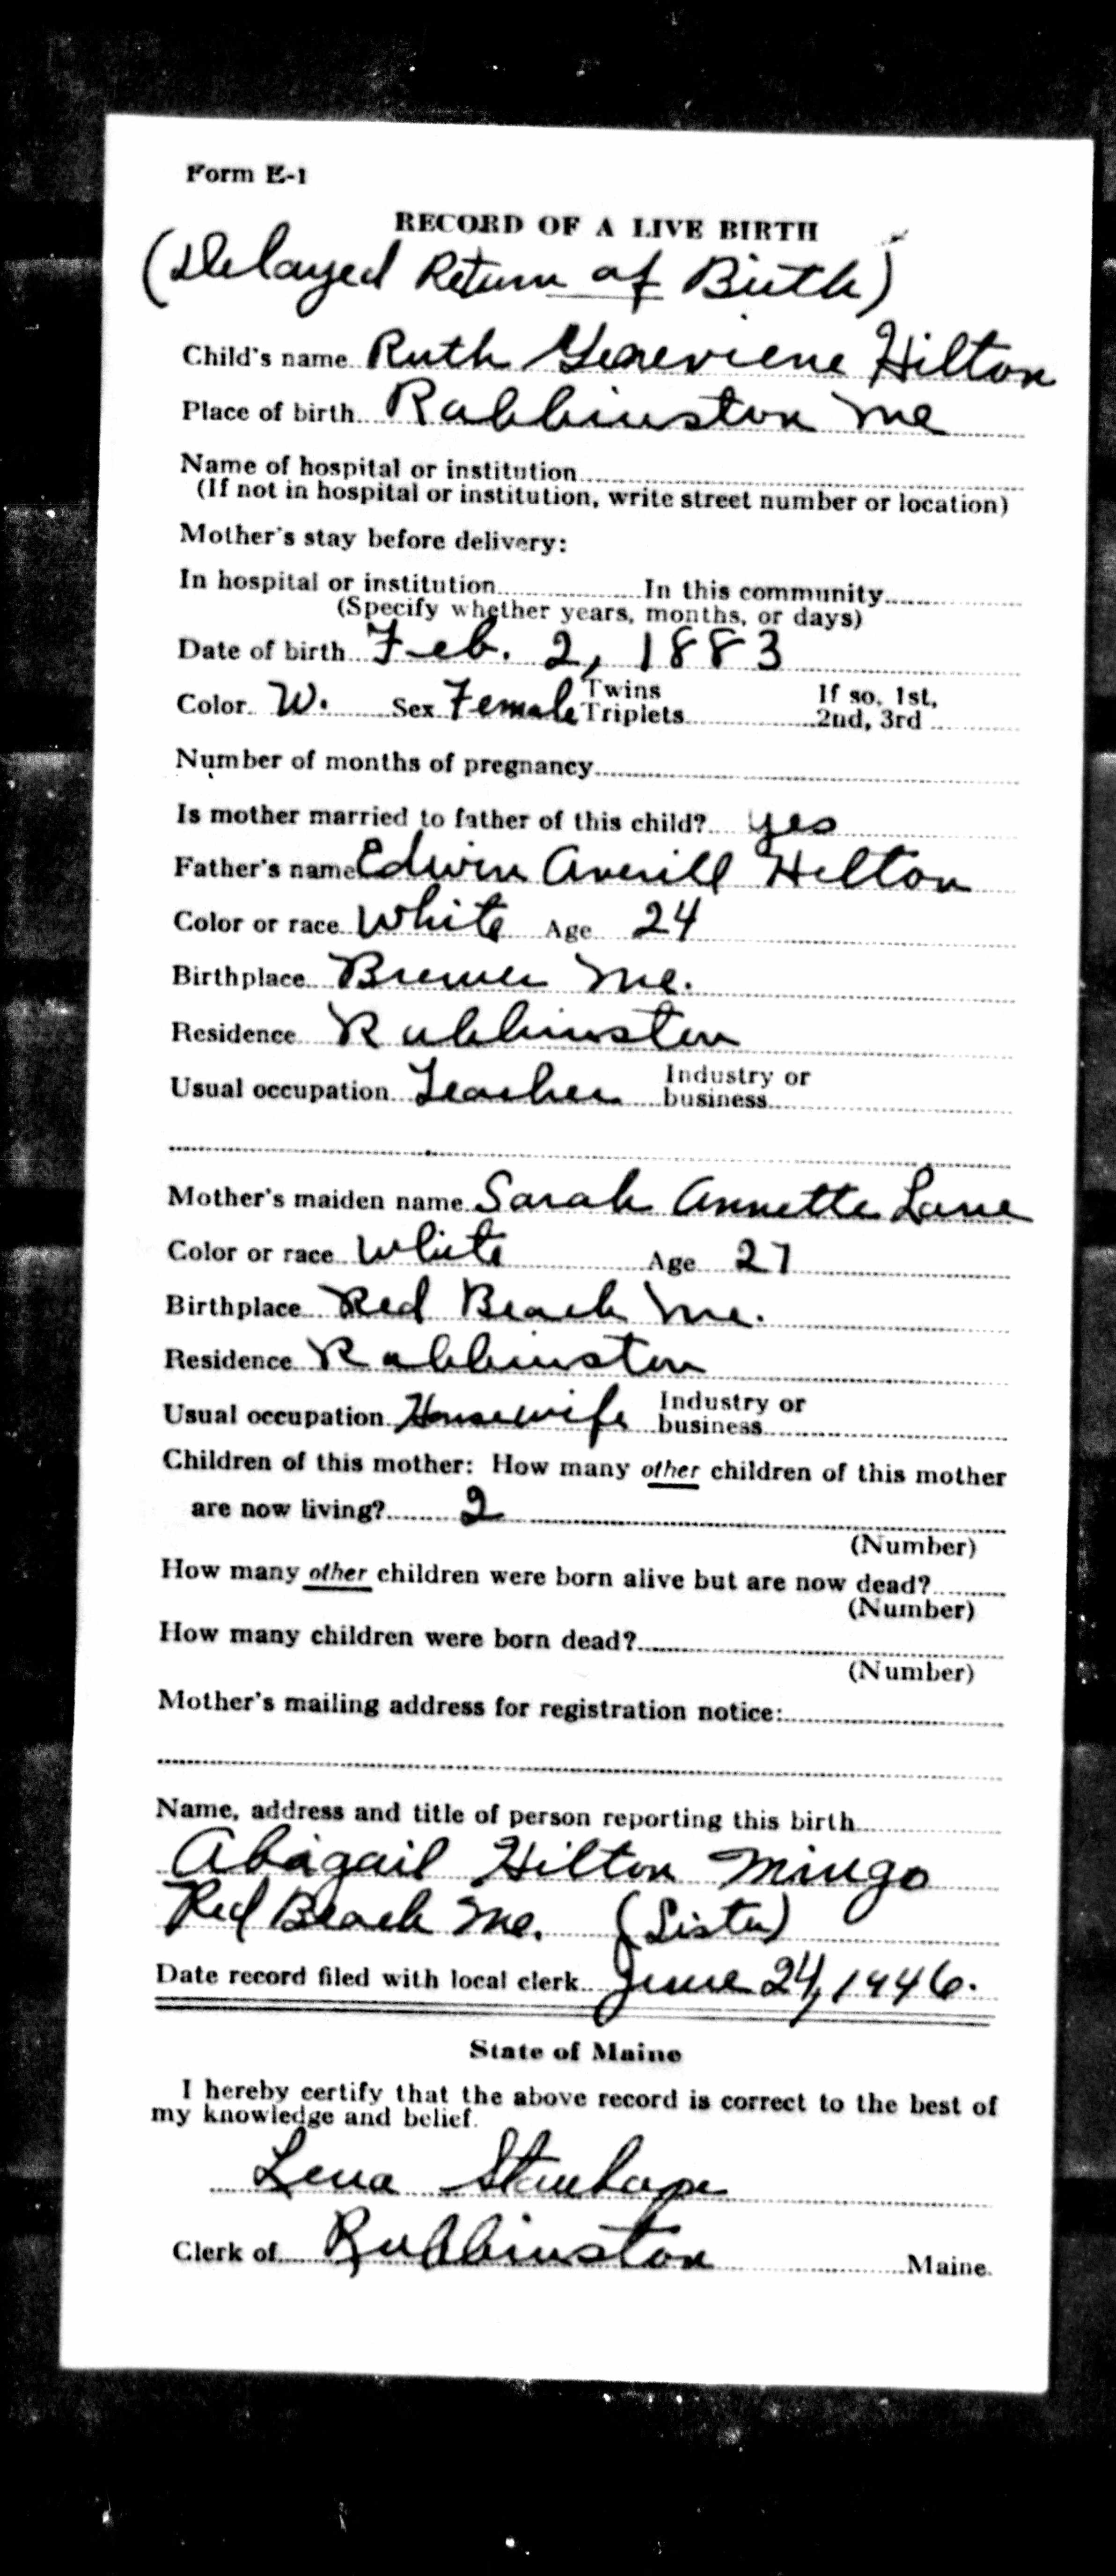 Form E-1
RECORD OF A LIVE BIRTH
(Delayed Return of Birth)
Child's name Ruth Geneviene Hilton
Place of birth Robbinston Me
Name of hospital or institution
(If not in hospital or institution, write street number or location)
Mother's stay before delivery:
In hospital or institution In this community
(Specify whether years, months, or days)
Date of birth Feb. 2, 1883
Color W. Sex Female Twins Triplets If so, 1st, 2nd, 3rd
Number of months of pregnancy
Is mother married to father of this child? yes
Father's name Edwin Averill Hilton
Color or race White Age 24
Birthplace Brewer Me.
Residence Robbinston
Usual occupation Teacher Industry or business
Mother's maiden name Sarah Annette Lane
Color or race White Age 27
Birthplace Red Beach Me.
Residence Robbinston
Usual occupation Housewife Industry or business
Children of this mother: How many other children of this mother
are now living? 2
(Number)
How many other children were born alive but are now dead?
(Number)
How many children were born dead?
(Number)
Mother's mailing address for registration notice:
Name, address and title of person reporting this birth
Abagail Hilton Mingo
Red Beach Me. (Sister)
Date record filed with local clerk June 24, 1946.
State of Maine
I hereby certify that the above record is correct to the best of
my knowledge and belief.
Lena Stanhope
Clerk of Robbinston Maine.